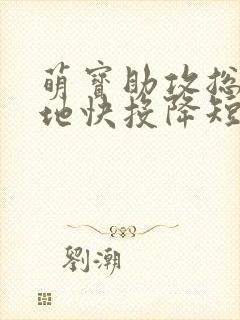 萌寶助攻總
地快投降短
劉潮